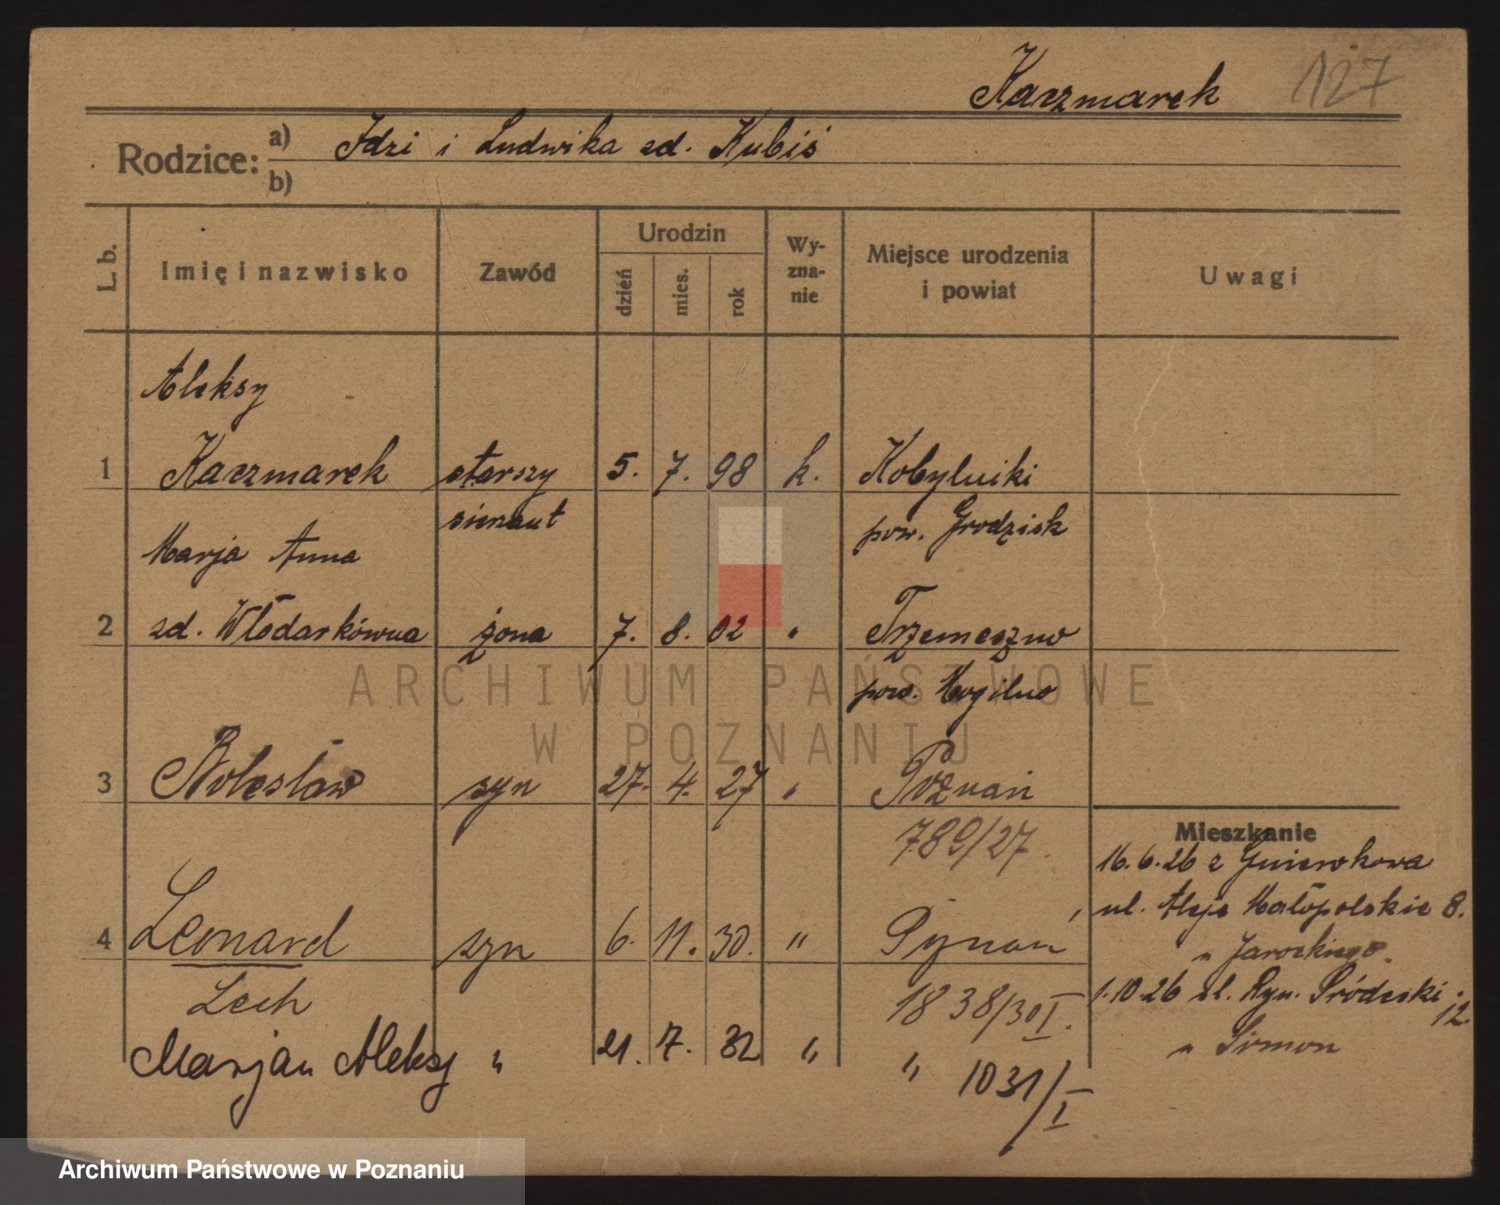 Kaczmarek 127
Rodzice: a) Idzi i Ludwika zd. Kubiś
b)
L. b. Imię i nazwisko Zawód Urodzin dzień mies. rok Wyznanie Miejsce urodzenia i powiat Uwagi
Aleksy
1 Kaczmarek starszy 5. 7. 98 k. Kobylniki
sierżant pow. Grodzisk
Marja Anna
2 zd. Włodarkówna żona 7. 8. 02 " Trzemeszno
pow. Mogilno
ARCHIWUM PAŃSTWOWE
W POZNANIU
3 Bolesław syn 27. 4. 27 " Poznań
789/27
Mieszkanie
16.6.26 z Gniewkowa
ul. Aleje Małopolskie 8.
" Jarockiego.
4 Leonard syn 6. 11. 30. " Poznań
Lech 1838/30 I.
1.10.26 ul. Ryn. Śródecki 12
" Simon
Marjan Aleksy " 21. 7. 32 " " 1031/I
Archiwum Państwowe w Poznaniu